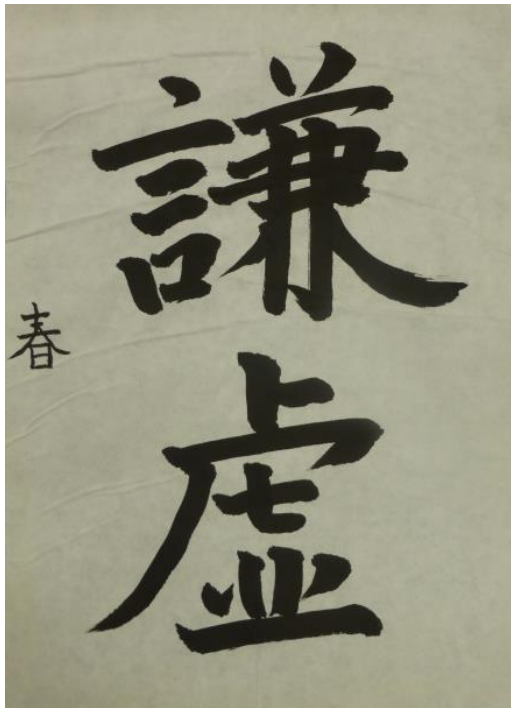 謙虚
春